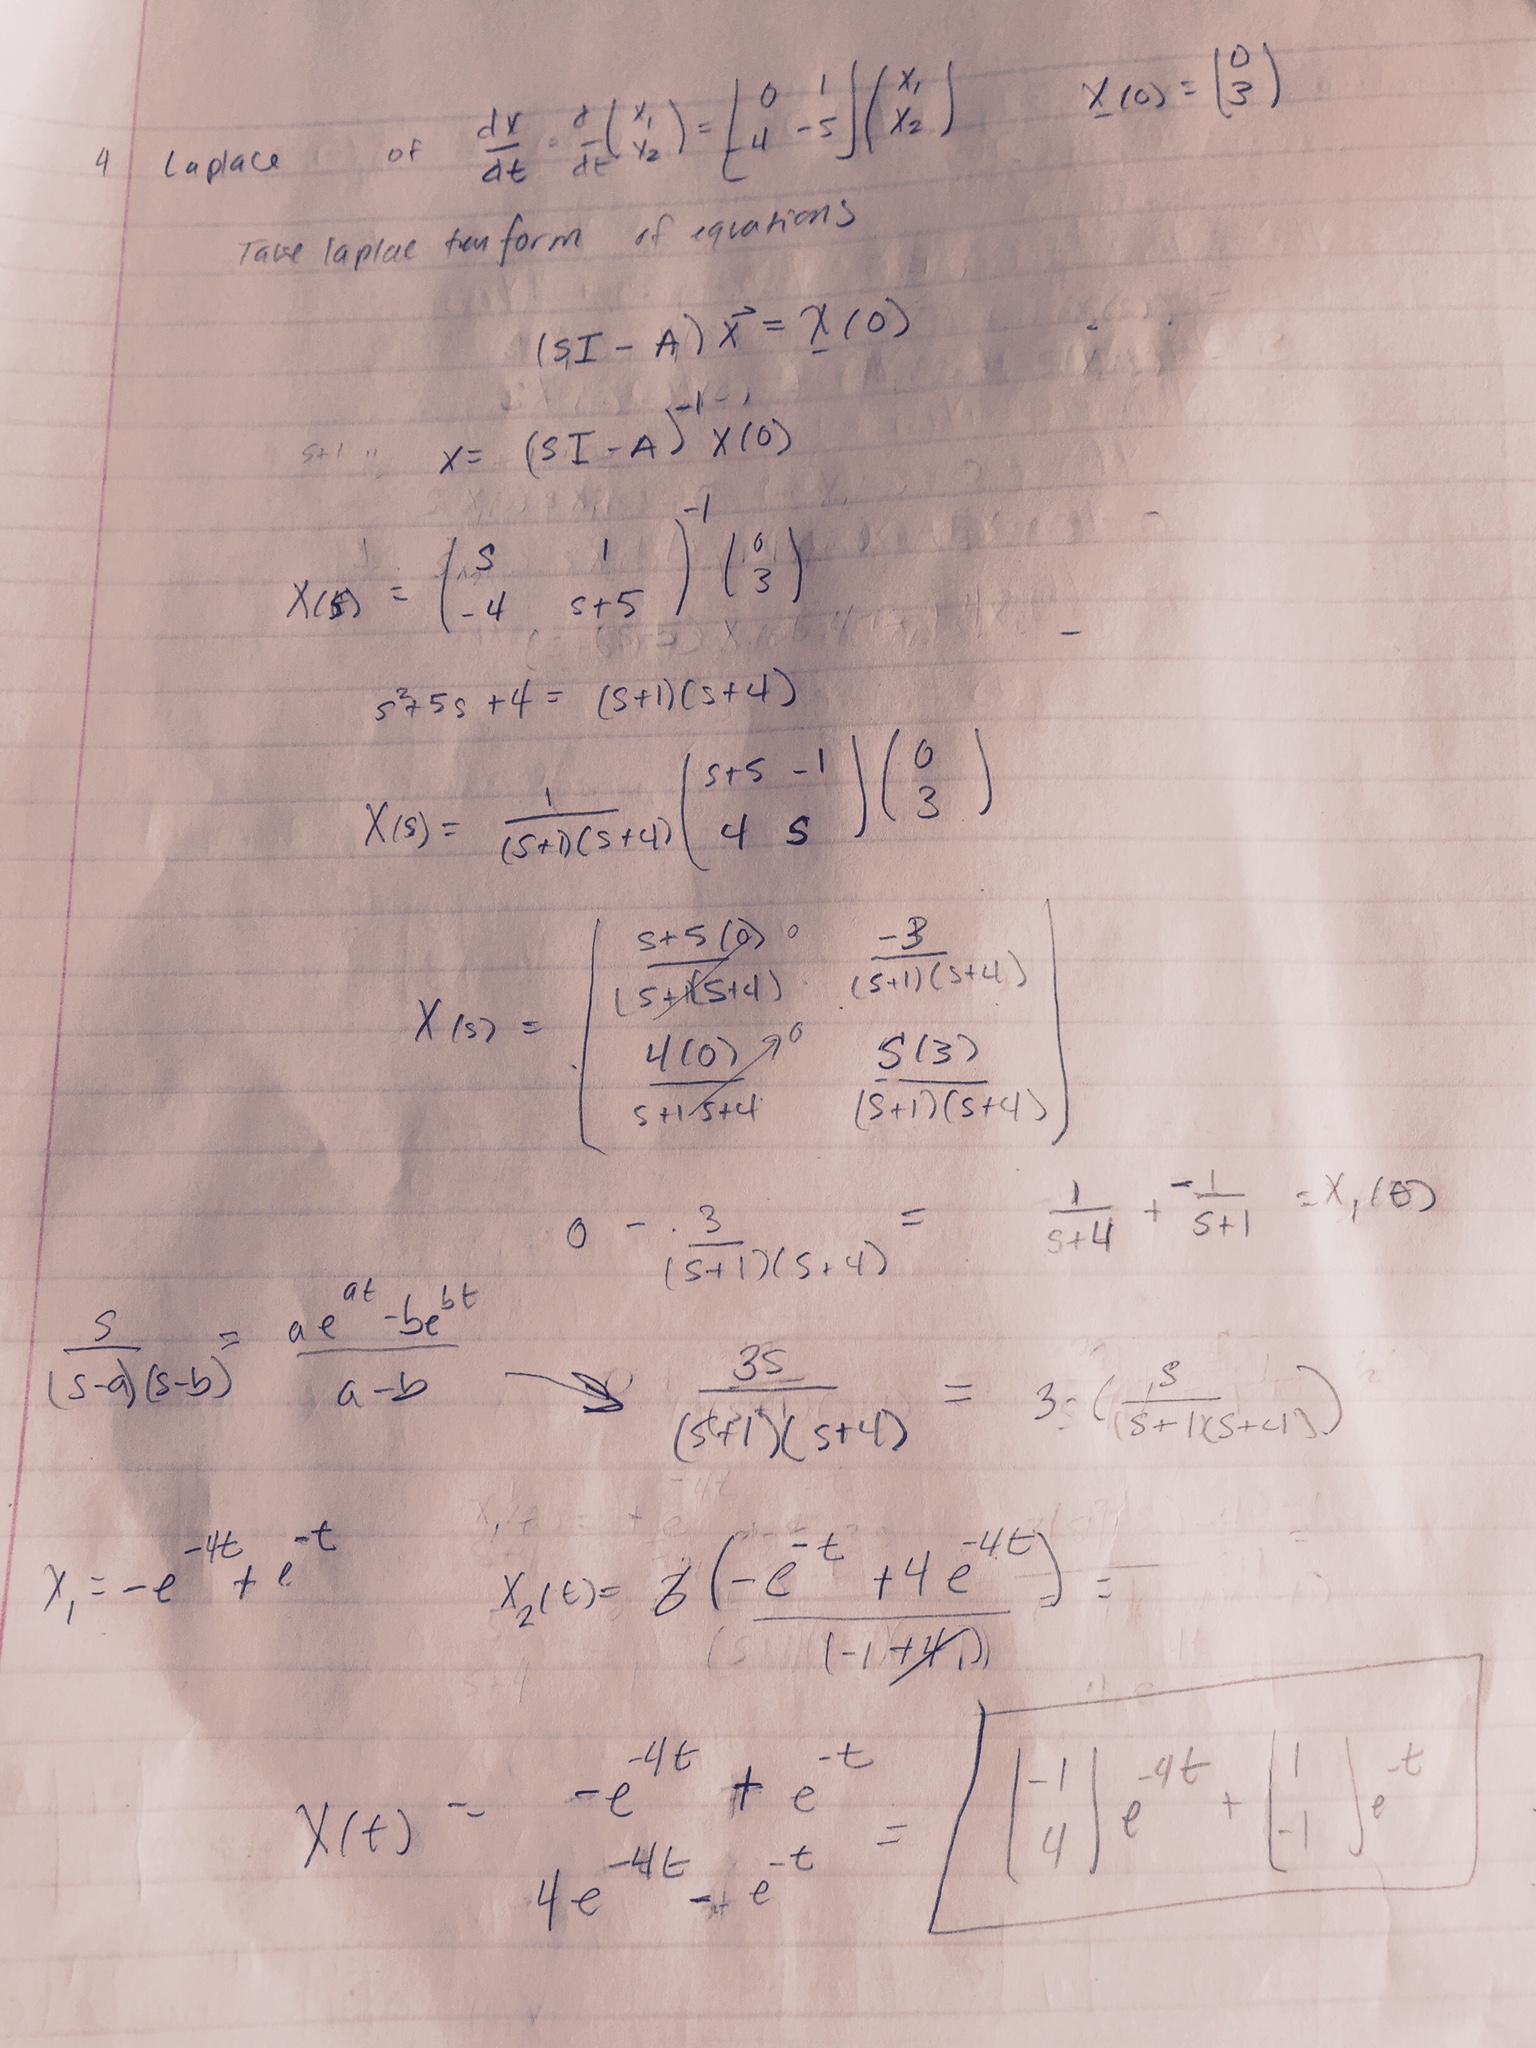 4 Laplace of dx/dt = d/dt (x₁ x₂) = [0 1 4 -5] (x₁ x₂) x(0) = (0 3)
Take laplae tranform of equations
(sI - A) x⃗ = x(0)
x = (sI - A)⁻¹ x(0)
X(s) = (s 1 -4 s+5)⁻¹ (0 3)
s²+5s+4 = (s+1)(s+4)
X(s) = 1/((s+1)(s+4)) (s+5 -1 4 s) (0 3)
s+5(0)/(s+1)(s+4) 0 -3/(s+1)(s+4)
X(s) =
4(0)/s+1 s+4 0 s(3)/(s+1)(s+4)
0 - 3/(s+1)(s+4) = 1/(s+4) + -1/(s+1) = X₁(t)
s/(s-a)(s-b) = (ae^(at) - be^(bt))/(a-b) → 3s/(s+1)(s+4) = 3 (s/(s+1)(s+4))
x₁ = -e^(-4t) + e^(-t) x₂(t) = 3(-e^(-t) + 4e^(-4t))/(-1+4) =
X(t) = -e^(-4t) + e^(-t)
4e^(-4t) - e^(-t) = (-1 4) e^(-4t) + (1 -1) e^(-t)